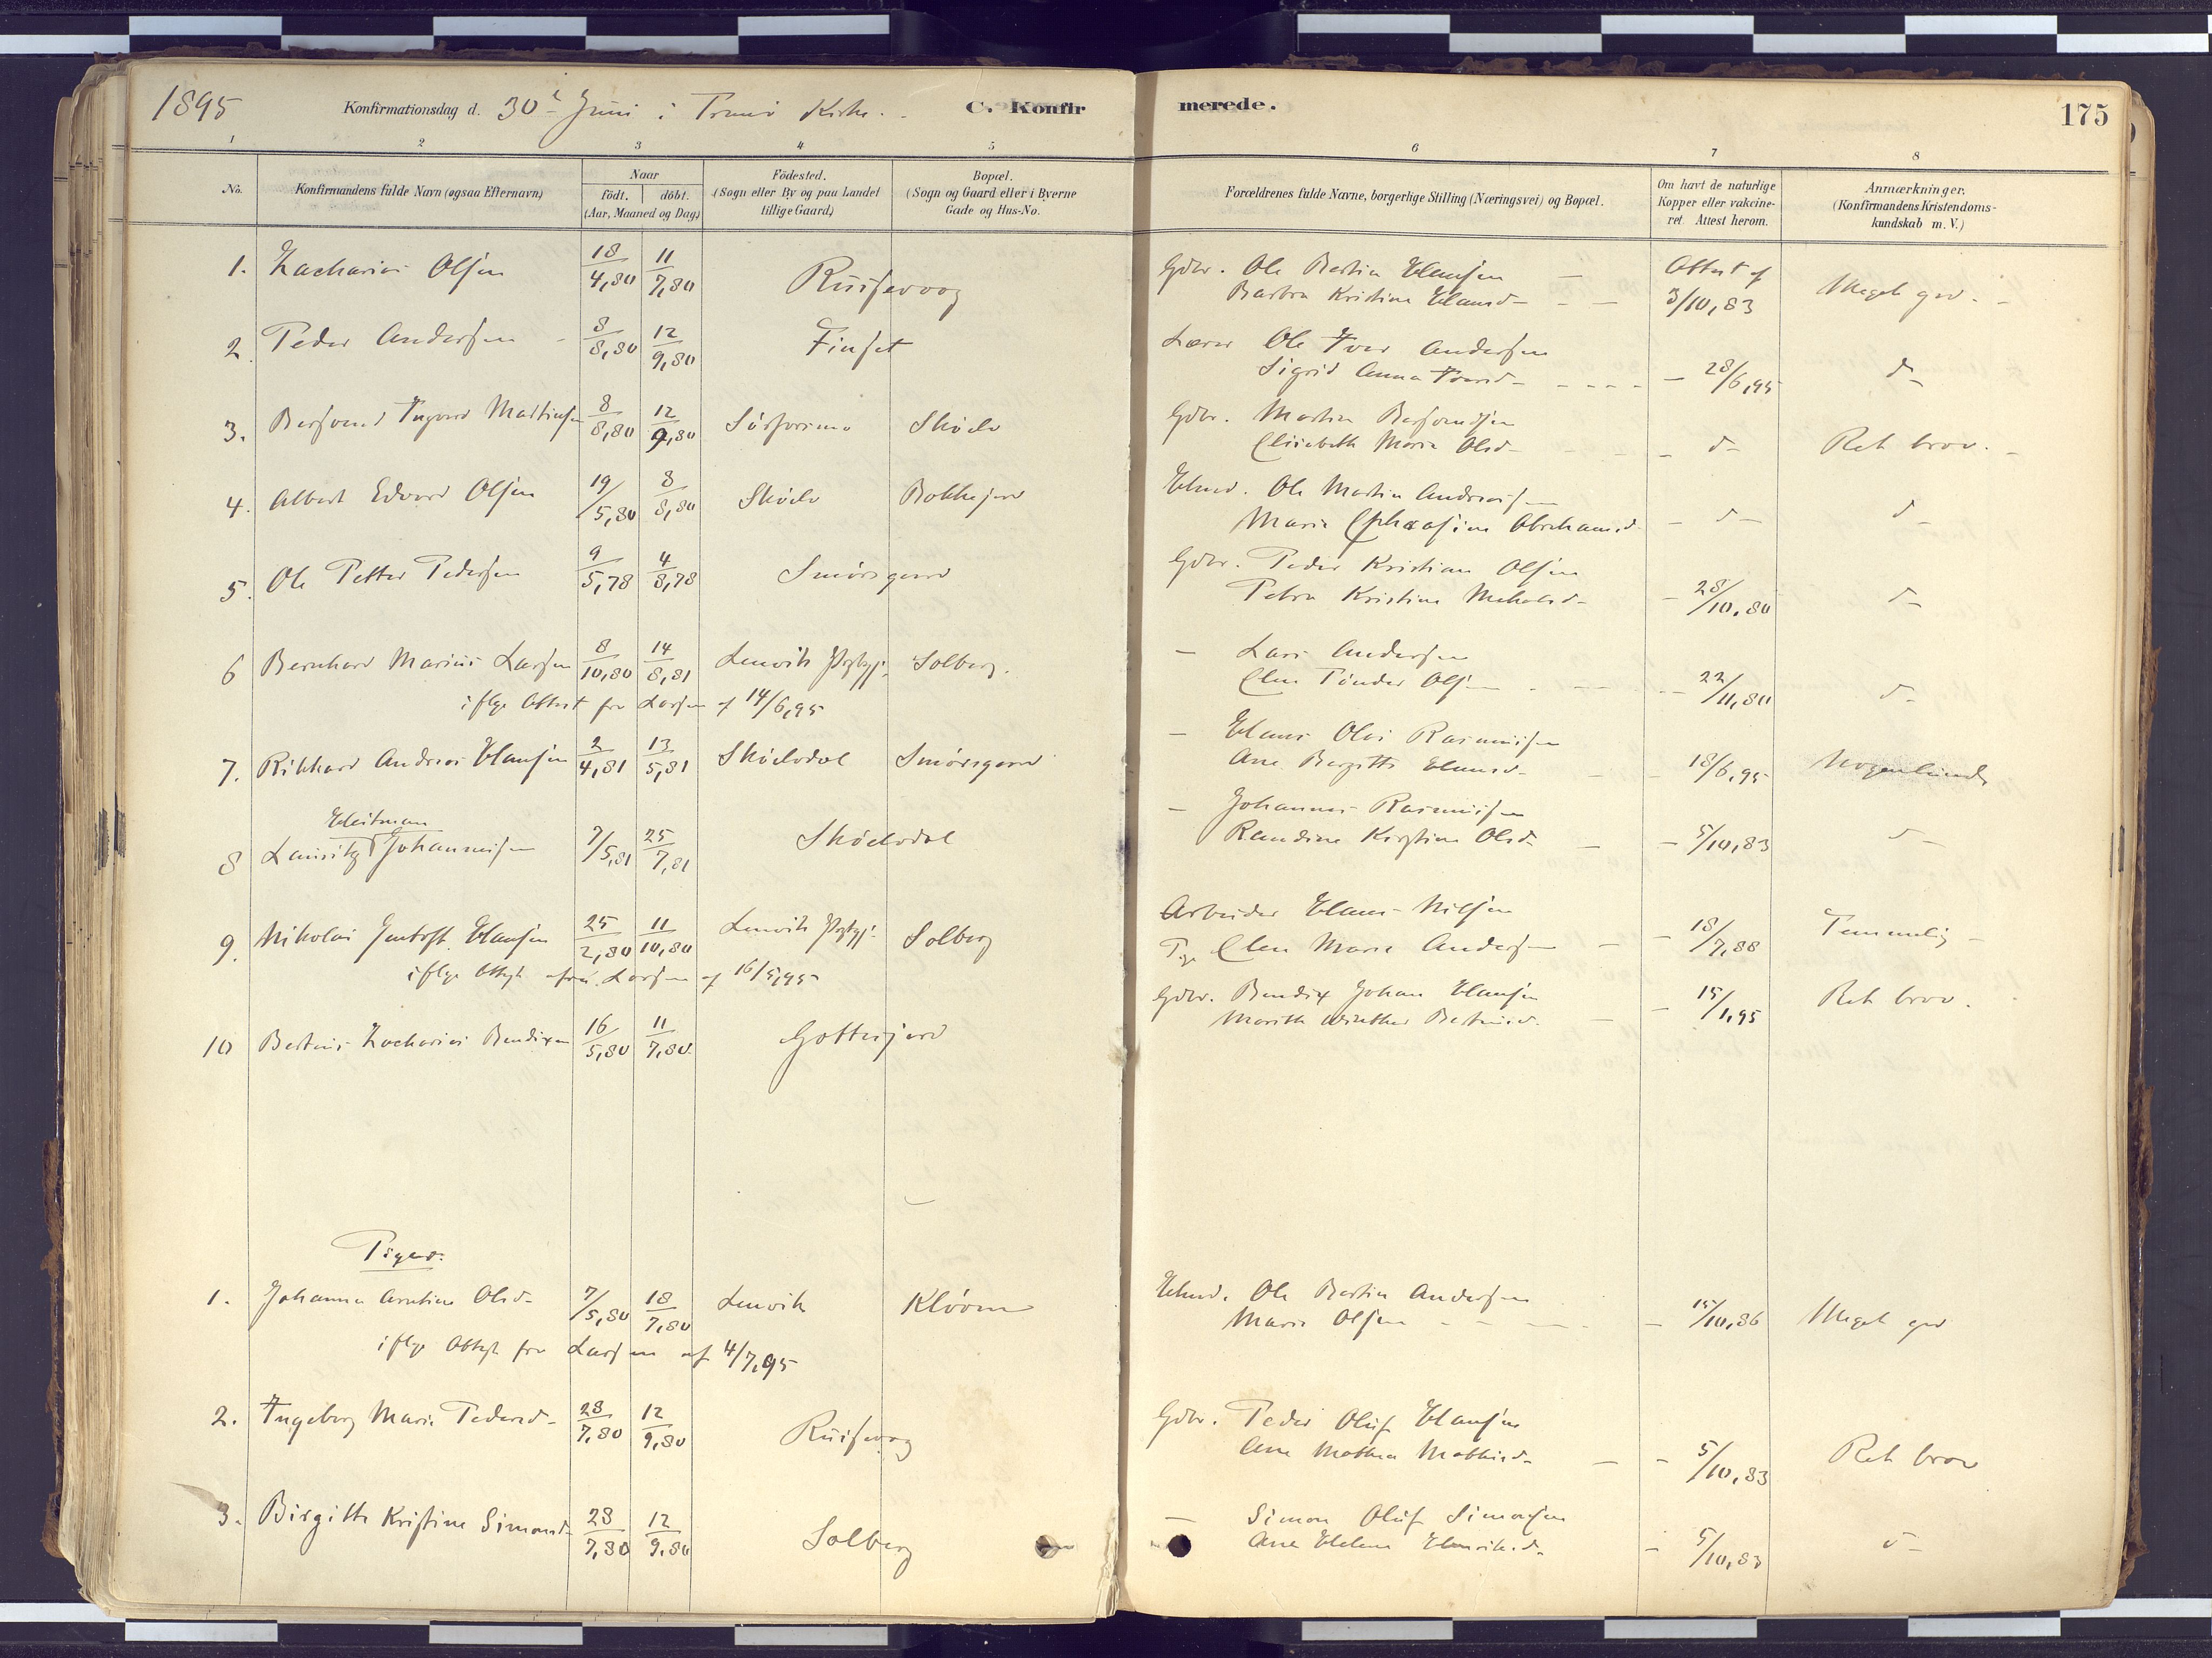 1895 Konfirmationsdag d. 30te Juni i Tranö Kirke. C. Konfirmerede. 175
1 2 3 4 5 6 7 8
No. Konfirmandens fulde Navn (ogsaa Efternavn) Naar födt. döbt. (Aar, Maaned og Dag) Födested. (Sogn eller By og paa Landet tillige Gaard) Bopæl. (Sogn og Gaard eller i Byerne Gade og Hus-No. Forældrenes fulde Navne, borgerlige Stilling (Næringsvei) og Bopæl. Om havt de naturlige Kopper eller vakcineret. Attest herom. Anmærkninger, (Konfirmandens Kristendomskundskab m. V.)
1. Zacharias Olsen 18/4,80 11/7,80 Rusevaag Gdbr. Ole Bertin Hansen Attest af Meget god.
Barbra Kristine Hansd 3/10,83
2. Peder Andersen 8/8,80 12/9,80 Finset Lærer Ole Iver Andersen
Sigrid Anna Iversd 28/6,95 d-
3. Bersvend Ingvard Martinsen 8/8,80 12/9,80 Sörforsmo Sköelv Gdbr. Martin Bersvendsen
Elisabeth Marie Olsd - d- Ret brav.
4. Albert Edvard Olsen 19/5,80 8/8,80 Sköelv Bokkejord Huusm. Ole Martin Andreassen
Maria Ephrosine Abrahamsd - d- d-
5. Ole Petter Pedersen 9/5,78 4/8,78 Smörsgaard Gdbr. Peder Kristian Olsen
Petra Kristine Mikalsd - 28/10,80 d-
6 Bernhard Marius Larsen 8/10,80 14/8,81 Lenvik Solberg. - Lars Andersen
Elen Tönder Olsen 22/11,80 d-
iflge Attest fra Larsen af 14/6,95
7. Rikkard Andreas Hansen 2/4,81 13/5,81 Sköelvdal Smörsgaard - Hans Olai Rasmussen
Ane Bergitte Hansd- 18/6,95 Nogenlunde
8 Lauritz Heitman Johannessen 7/5,81 25/7,81 Sköelvdal - Johannes Rasmussen
Randine Kirstine Olsd - 5/10,83 d-
9. Nikolai Gentoft Hansen 25/2,80 11/10,80 Lenvik Solberg Arbeider Hans Nilsen
Pge Elen Marie Andersen - 18/7,88 Temmelig
iflge Attest fra Larsen af 16/5,95
10 Berteus Zacharias Bendixen 16/5,80 11/7,80 Gottesjord Gdbr. Bendix Johan Hansen
Marith Winther Berteusd. - 15/1,95 Ret brav.
Piger.
1. Johanna Arntine Olsd- 7/5,80 18/7,80 Lenvik Klöven Huusm. Ole Bertin Andersen
Marie Olsen - 15/10,86 Meget god
iflge Attest fra Larsen af 4/7,95
2. Ingeborg Marie Pedersd- 28/7,80 12/9,80 Rusevaag Gdbr. Peder Oluf Hansen
Ane Mathea Mathisd- - 5/10,83 Ret brav
3. Birgitte Kristine Simonsd- 28/7,80 12/9,80 Solberg - Simon Oluf Simonsen
Ane Helene Henriksd. - 5/10,83 d-